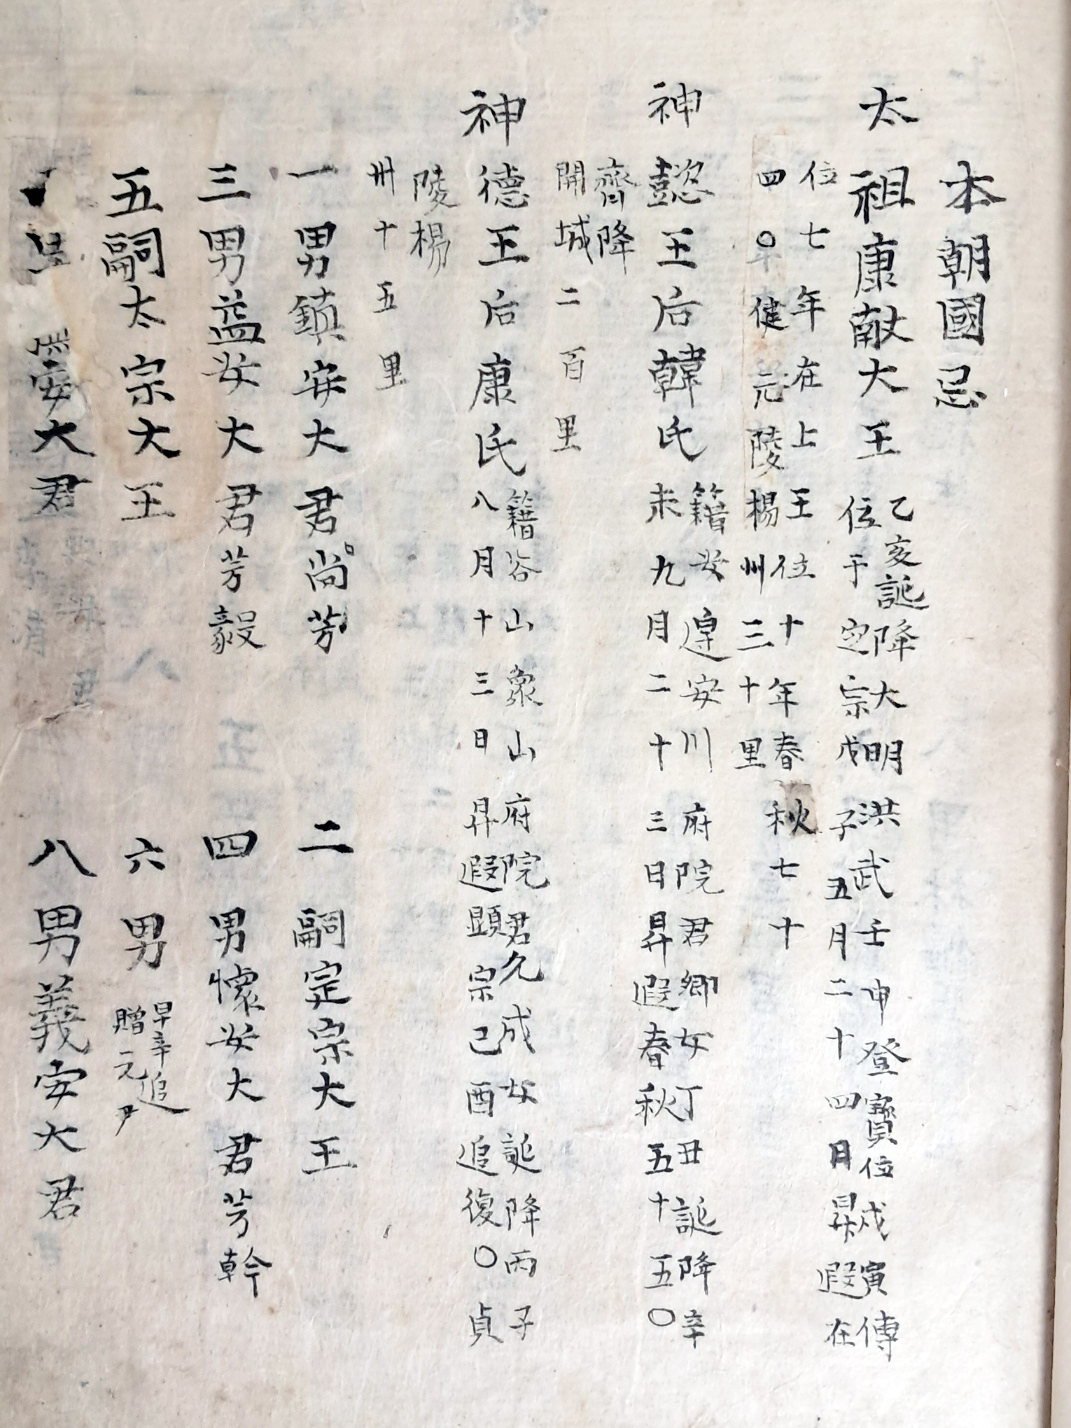 本朝國忌
太祖康獻大王
乙亥誕降大明洪武壬申登寶位戊寅傳
位于定宗戊子五月二十四日昇遐在
位七年在上王位十年春秋七十
四○健元陵楊州三十里
神懿王后韓氏
籍安邊安川府院君卿女丁丑誕降辛
未九月二十三日昇遐春秋五十五○
齊陵
開城二百里
神德王后康氏
籍谷山象山府院君允成女誕降丙子
八月十三日昇遐顯宗己酉追復○貞
陵楊
州十五里
一男鎮安大君芳 二嗣定宗大王
三男益安大君芳毅 四男懷安大君芳幹
五嗣太宗大王 六男
早卒追
贈元尹
安大君 八男義安大君